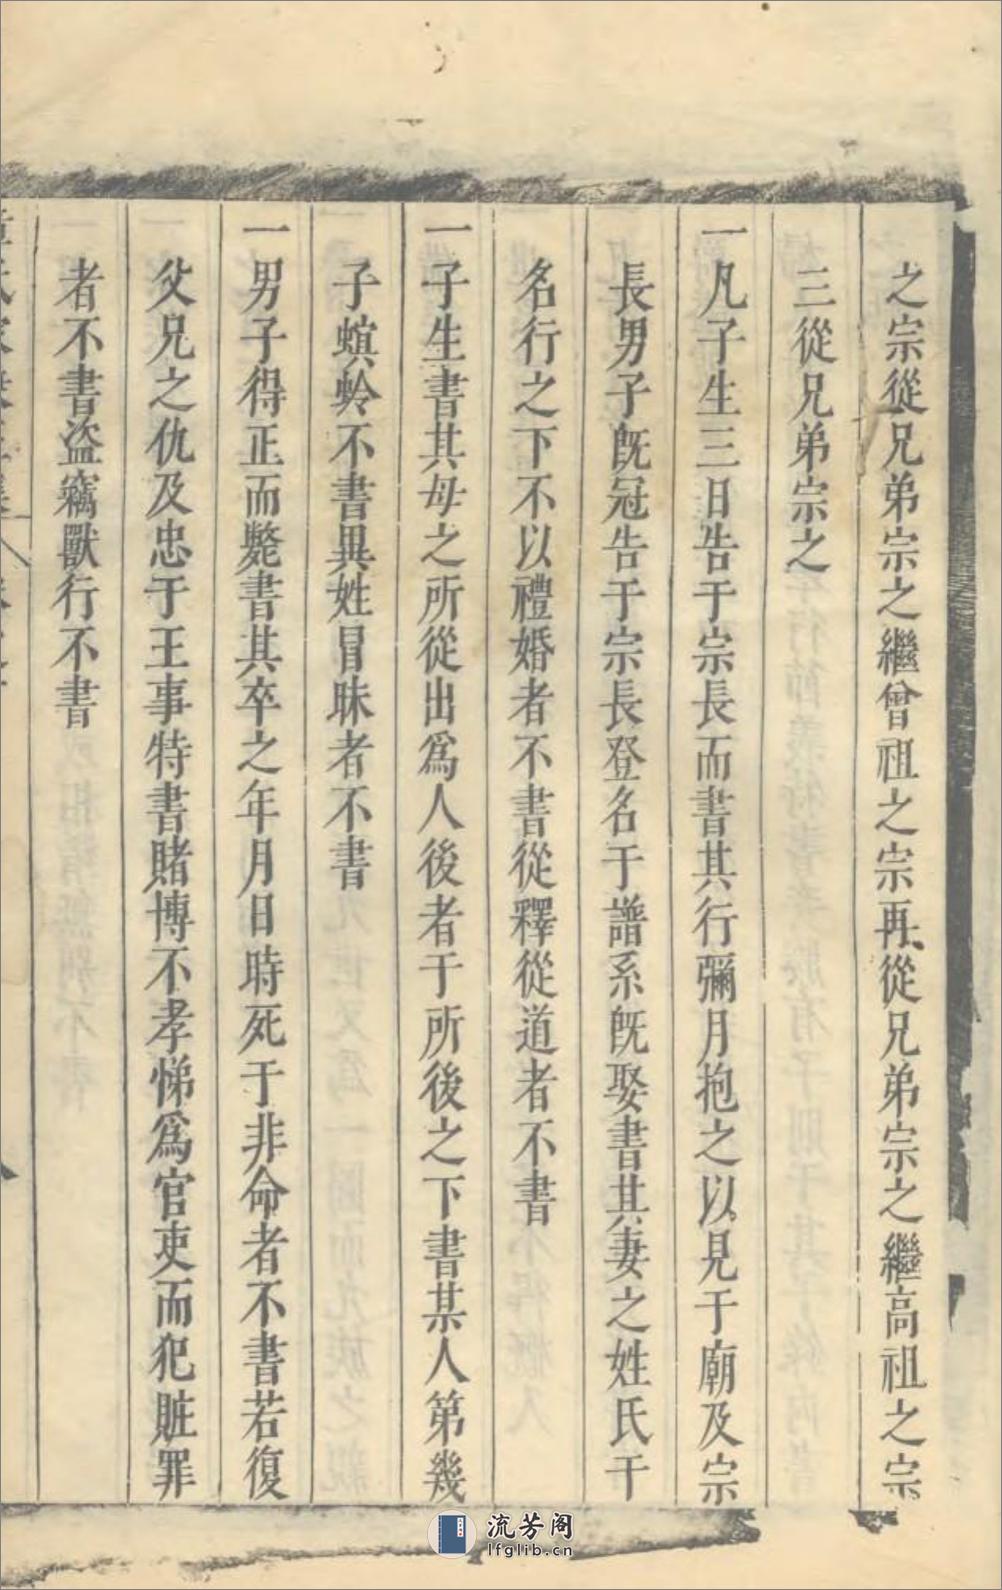 之宗從兄弟宗之繼曾祖之宗再從兄弟宗之繼高祖之宗
三從兄弟宗之
一凡子生三日告于宗長而書其行彌月抱之以見于廟及宗
長男子既冠告于宗長登名于譜系既娶書其妻之姓氏于
名行之下不以禮婚者不書從釋從道者不書
一子生書其母之所從出爲人後者于所後之下書某人第幾
子螟蛉不書異姓冒昧者不書
一男子得正而斃書其卒之年月日時死于非命者不書若復
父兄之仇及忠于王事特書賭博不孝悌爲官吏而犯贓罪
者不書盜竊獸行不書
流芳阁
lfglib.cn